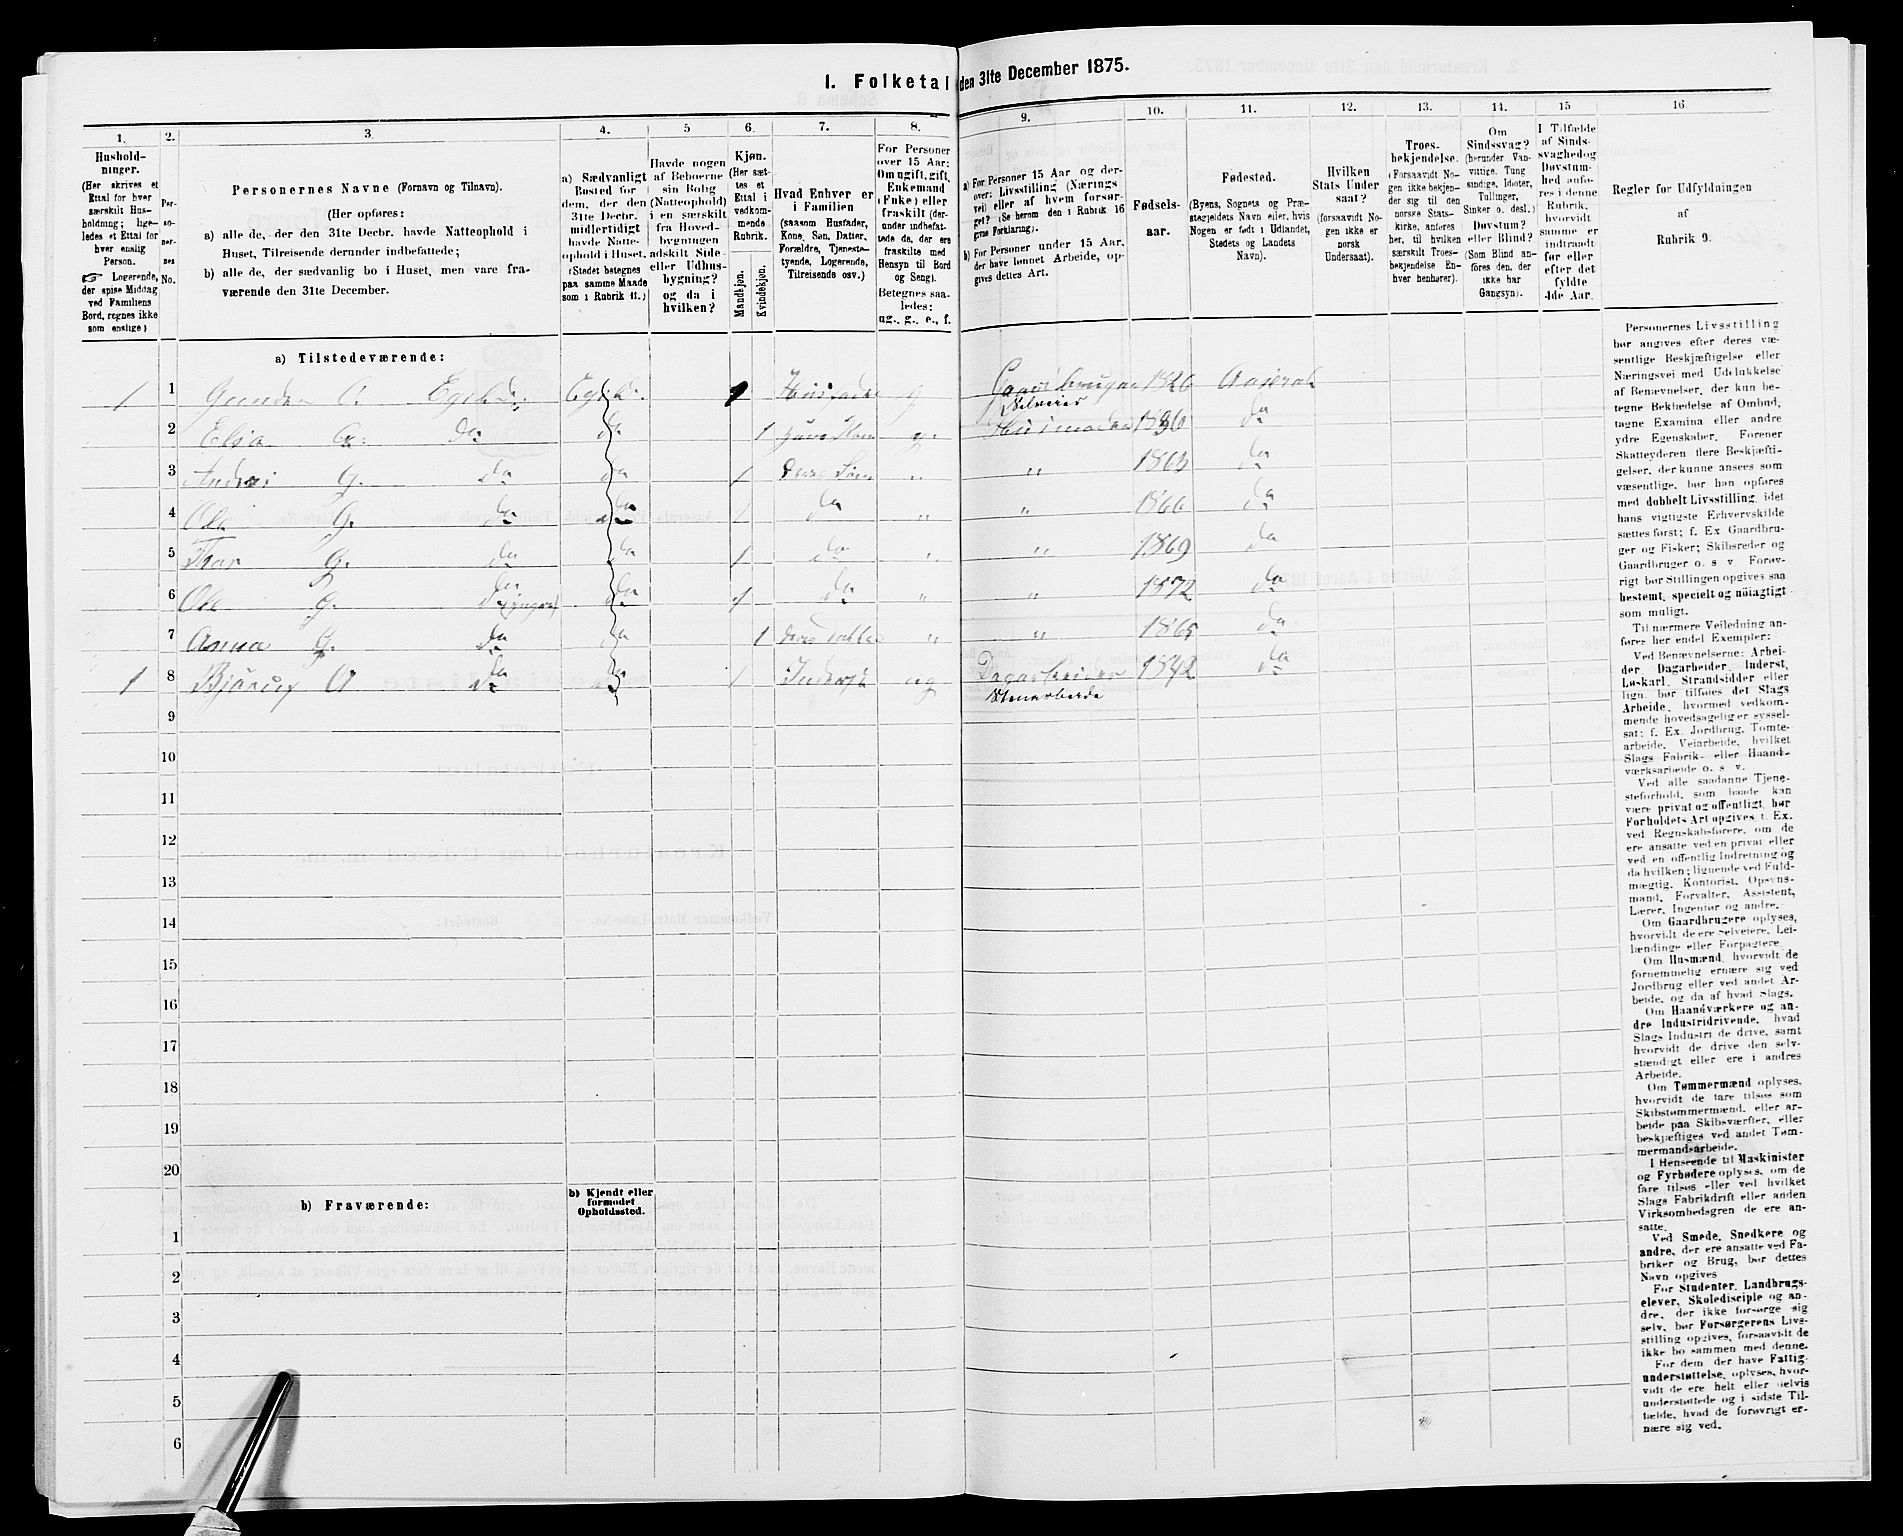 1. Folketal den 31te December 1875.
1.
2.
3.
4.
5
6.
7.
8.
9.
10.
11.
12.
13.
14.
15
16
Hushold-
ninger.
(Her skrives et
Ettal for hver
særskilt Hus-
holdning; lige-
ledes et Ettal for
hver enslig
Person.
☞ Logerende,
der spise Middag
ved Familiens
Bord, regnes ikke
som enslige)
Per-
so-
ner-
nes
No.
Personernes Navne (Fornavn og Tilnavn).
(Her opføres:
a) alle de, der den 31te Decbr. havde Natteophold i
Huset, Tilreisende derunder indbefattede;
b) alle de, der sædvanlig bo i Huset, men vare fra-
værende den 31te December.
a) Sædvanligt
Bosted for
dem, der den
31te Decbr.
midlertidigt
havde Natte-
ophold i Huset.
(Stedet betegnes
paa samme Maade
som i Rubrik 11.)
Havde nogen
af Beboerne
sin Bolig
(Natteophold)
i en særskilt
fra Hoved-
bygningen
adskilt Side-
eller Udhus-
bygning?
og da i
hvilken?
Kjøn.
(Her sæt-
tes et
Ettal i
vedkom-
mende
Rubrik.
Mandkjøn.
Kvindekjøn.
Hvad Enhver er
i Familien
(saasom Husfader,
Kone, Søn, Datter,
Forældre, Tjeneste-
tyende, Logerende,
Tilreisende osv.)
For Personer
over 15 Aar:
Om ugift, gift,
Enkemand
(Enke) eller
fraskilt (der-
under indbefat-
tede de, der ere
fraskilte med
Hensyn til Bord
og Seng).
Betegnes saa-
ledes:
ug., g., e., f.
a) For Personer 15 Aar og der-
over: Livsstilling (Nærings
vei) eller af hvem forsør-
get? (Se herom den i Rubrik 16
givne Forklaring).
b) For Personer under 15 Aar,
der have lønnet Arbeide, op-
gives dettes Art.
Fødsels-
aar.
Fødested.
(Byens, Sognets og Præ-
stegjeldets Navn eller, hvis
Nogen er født i Udlandet,
Stedets og Landets
Navn).
Hvilken
Stats Under
saat?
(forsaavidt No-
gen ikke er
norsk
Undersaat).
Troes-
bekjendelse.
(Forsaavidt No-
gen ikke bekjen-
der sig til den
norske Stats-
kirke, anføres
her, til hvilken
særskilt Troes-
bekjendelse En-
hver henhører).
Om
Sindssvag?
(herunder Van-
vittige, Tung
sindige, Idioter,
Tullinger,
Sinker o. desl.)
Døvstum?
eller Blind?
(Som Blind an-
føres den, der
ikke har
Gangsyn).
I Tilfælde
af Sinds-
svaghed og
Døvstum-
hed anfø-
res i denne
Rubrik,
hvorvidt
samme er
indtraadt
før eller
efter det
fyldte
4de Aar.
Regler for Udfyldningen
af
Rubrik 9.
a) Tilstedeværende:
1 1 g Gaardbruger 1826
Selveier
2 Do Do 1 g. Husmoder 1836 Do
3 G. Do Do 1 Deres Søn „ „ 1863 Do
4 Ole G. Do Do 1 Do „ „ 1866 Do
5 G. Do Do 1 Do „ „ 1869 Do
6 Ole G. Do Do 1 Do „ „ 1872 Do
7 Anna G. Do Do 1 „ „ 1865 Do
1 8 A Do Do 1 Inderst ug Dagarbeider 1842 Do
Stenarbeide
9
10
11
12
13
14
15
16
17
18
19
20
b) Fraværende:
b) Kjendt eller
formodet
Opholdssted.
1
2
3
4
5
6
Personernes Livsstilling
bør angives efter deres væ-
sentlige Beskjæftigelse eller
Næringsvei med Udelukkelse
af Benævnelser, der kun be-
tegne Beklædelse af Ombud,
tagne Examina eller andre
ydre Egenskaber. Forener
Skatteyderen flere Beskjæfti-
gelser, der kunne ansees som
væsentlige, bør han opføres
med dobbelt Livsstilling, idet
hans vigtigste Erhvervskilde
sættes først; f. Ex Gaardbru-
ger og Fisker; Skibsreder og
Gaardbruger o. s v. Forøv-
rigt bør Stillingen opgives saa
bestemt, specielt og nöiagtigt
som muligt.
Til nærmere Veiledning an-
føres her endel Exempler:
Ved Benævnelserne: Arbei-
der, Dagarbeider, Inderst,
Løskarl, Strandsidder eller
lign. bør tilføies det Slags
Arbeide, hvormed vedkom-
mende hovedsagelig er syssel-
sat; f. Ex. Jordbrug, Tomte-
arbeide, Veiarbeide, hvilket
Slags Fabrik- eller Haand-
værksarbeide o. s. v.
Ved alle saadanne Tjene-
steforhold, som baade kan
være privat og offentligt, bør
Forholdets Art opgives, f. Ex.
ved Regnskabsførere, om de
ere ansatte ved en privat eller
ved en offentlig Indretning og
da hvilken; lignende ved Fuld-
mægtig, Kontorist, Opsyns-
mand, Forvalter, Assistent,
Lærer, Ingeniør og andre.
Om Gaardbrugere oplyses,
hvorvidt de ere Selveiere, Lei-
lændinge eller Forpagtere.
Om Husmænd, hvorvidt de
fornemmelig ernære sig ved
Jordbrug eller ved andet Ar-
beide, og da af hvad Slags.
Om Haandværkere og an-
dre Industridrivende, hvad
Slags Industri de drive, samt
hvorvidt de drive den selv-
stændigt eller ere i andres
Arbeide.
Om Tømmermænd oplyses,
hvorvidt de fare tilsøs som
Skibstømmermænd, eller ar-
beide paa Skibsværfter, eller
beskjæftiges ved andet Tøm-
mermandsarbeide.
I Henseende til Maskinister
og Fyrbødere oplyses, om de
fare tilsøs eller ved hvilket
Slags Fabrikdrift eller anden
Virksomhedsgren de ere an-
satte.
Ved Smede, Snedkere og
andre, der ere ansatte ved Fa-
briker og Brug, bør dettes
Navn opgives
For Studenter, Landbrugs-
elever, Skoledisciple og an-
dre, der ikke forsørge sig
selv, bør Forsørgerens Livs-
stilling opgives, forsaavidt de
ikke bo sammen med denne.
For dem, der have Fattig-
understøttelse, oplyses, hvor-
vidt de ere helt eller delvis
understøttede og i sidste Til-
fælde, hvad de forøvrigt er-
nære sig ved.